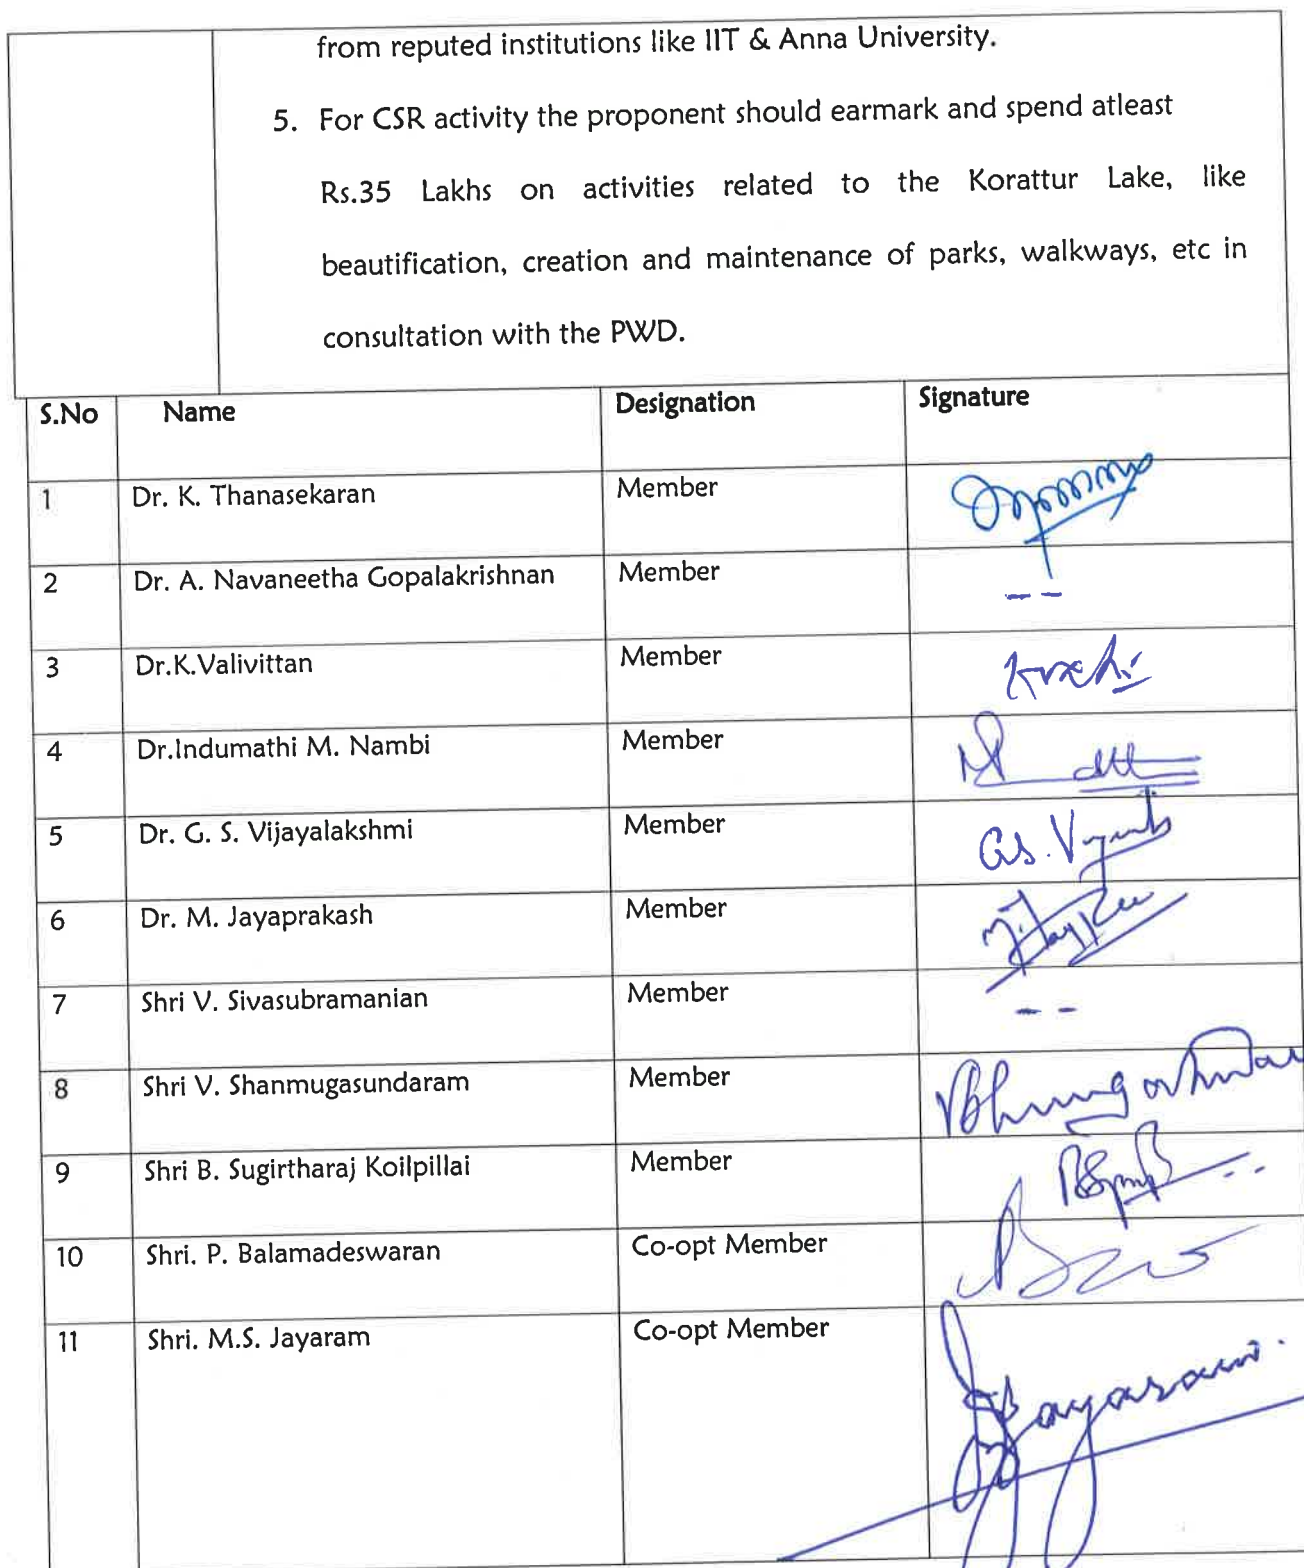 from reputed institutions like IIT & Anna University.
5. For CSR activity the proponent should earmark and spend atleast
Rs.35 Lakhs on activities related to the Korattur Lake, like
beautification, creation and maintenance of parks, walkways, etc in
consultation with the PWD.
S.No Name Designation Signature
1 Dr. K. Thanasekaran Member
2 Dr. A. Navaneetha Gopalakrishnan Member --
3 Dr.K.Valivittan Member
4 Dr.Indumathi M. Nambi Member
5 Dr. G. S. Vijayalakshmi Member
6 Dr. M. Jayaprakash Member
7 Shri V. Sivasubramanian Member --
8 Shri V. Shanmugasundaram Member
9 Shri B. Sugirtharaj Koilpillai Member
10 Shri. P. Balamadeswaran Co-opt Member
11 Shri. M.S. Jayaram Co-opt Member